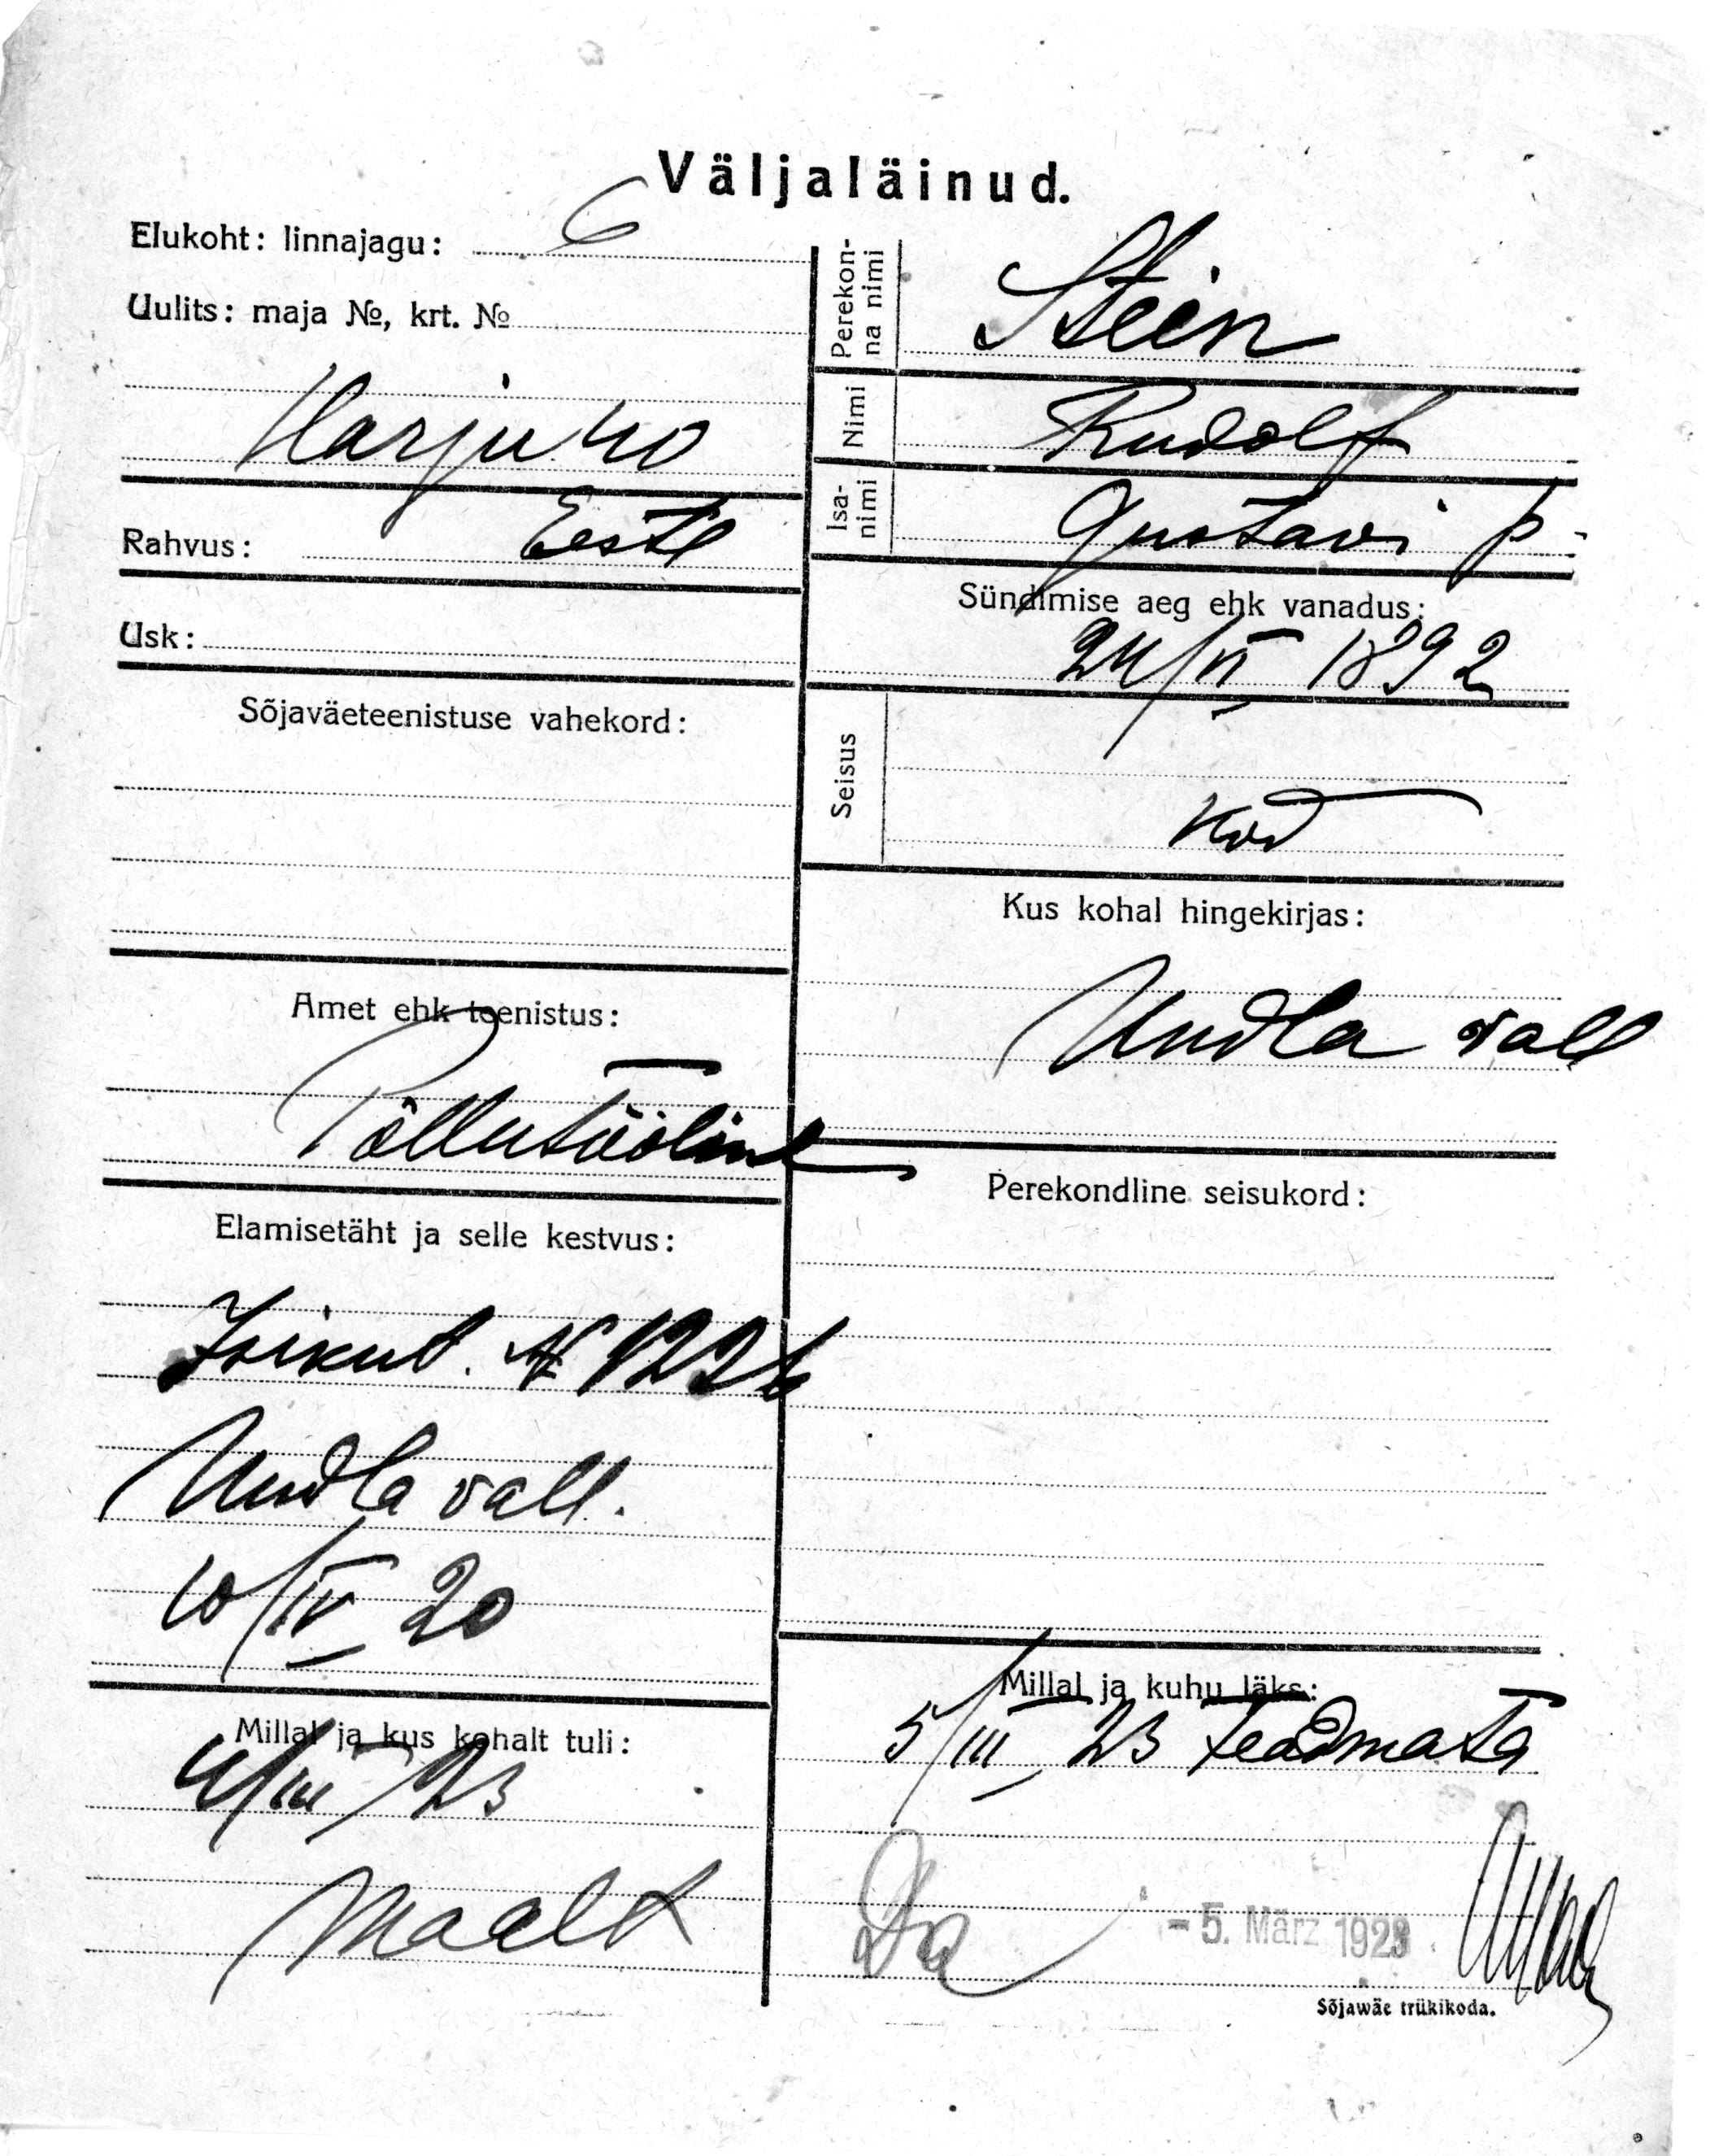 Väljaläinud.
Elukoht: linnajagu: 6
Uulits: maja №, krt. №
Harju 40
Rahvus: Eesti
Usk:
Sõjaväeteenistuse vahekord:
Amet ehk teenistus:
Põllutööline
Elamisetäht ja selle kestvus:
Isikut. № 1226
Undla vall.
10/IV 20
Millal ja kus kohalt tuli:
4/III 23
Maalt
Perekonna nimi Stein
Nimi Rudolf
Isanimi Gustavi p.
Sündimise aeg ehk vanadus:
24/VI 1892
Seisus
Kod
Kus kohal hingekirjas:
Undla vall
Perekondline seisukord:
Millal ja kuhu läks:
5/III 23 teadmata
- 5. März 1923
Sõjawäe trükikoda.